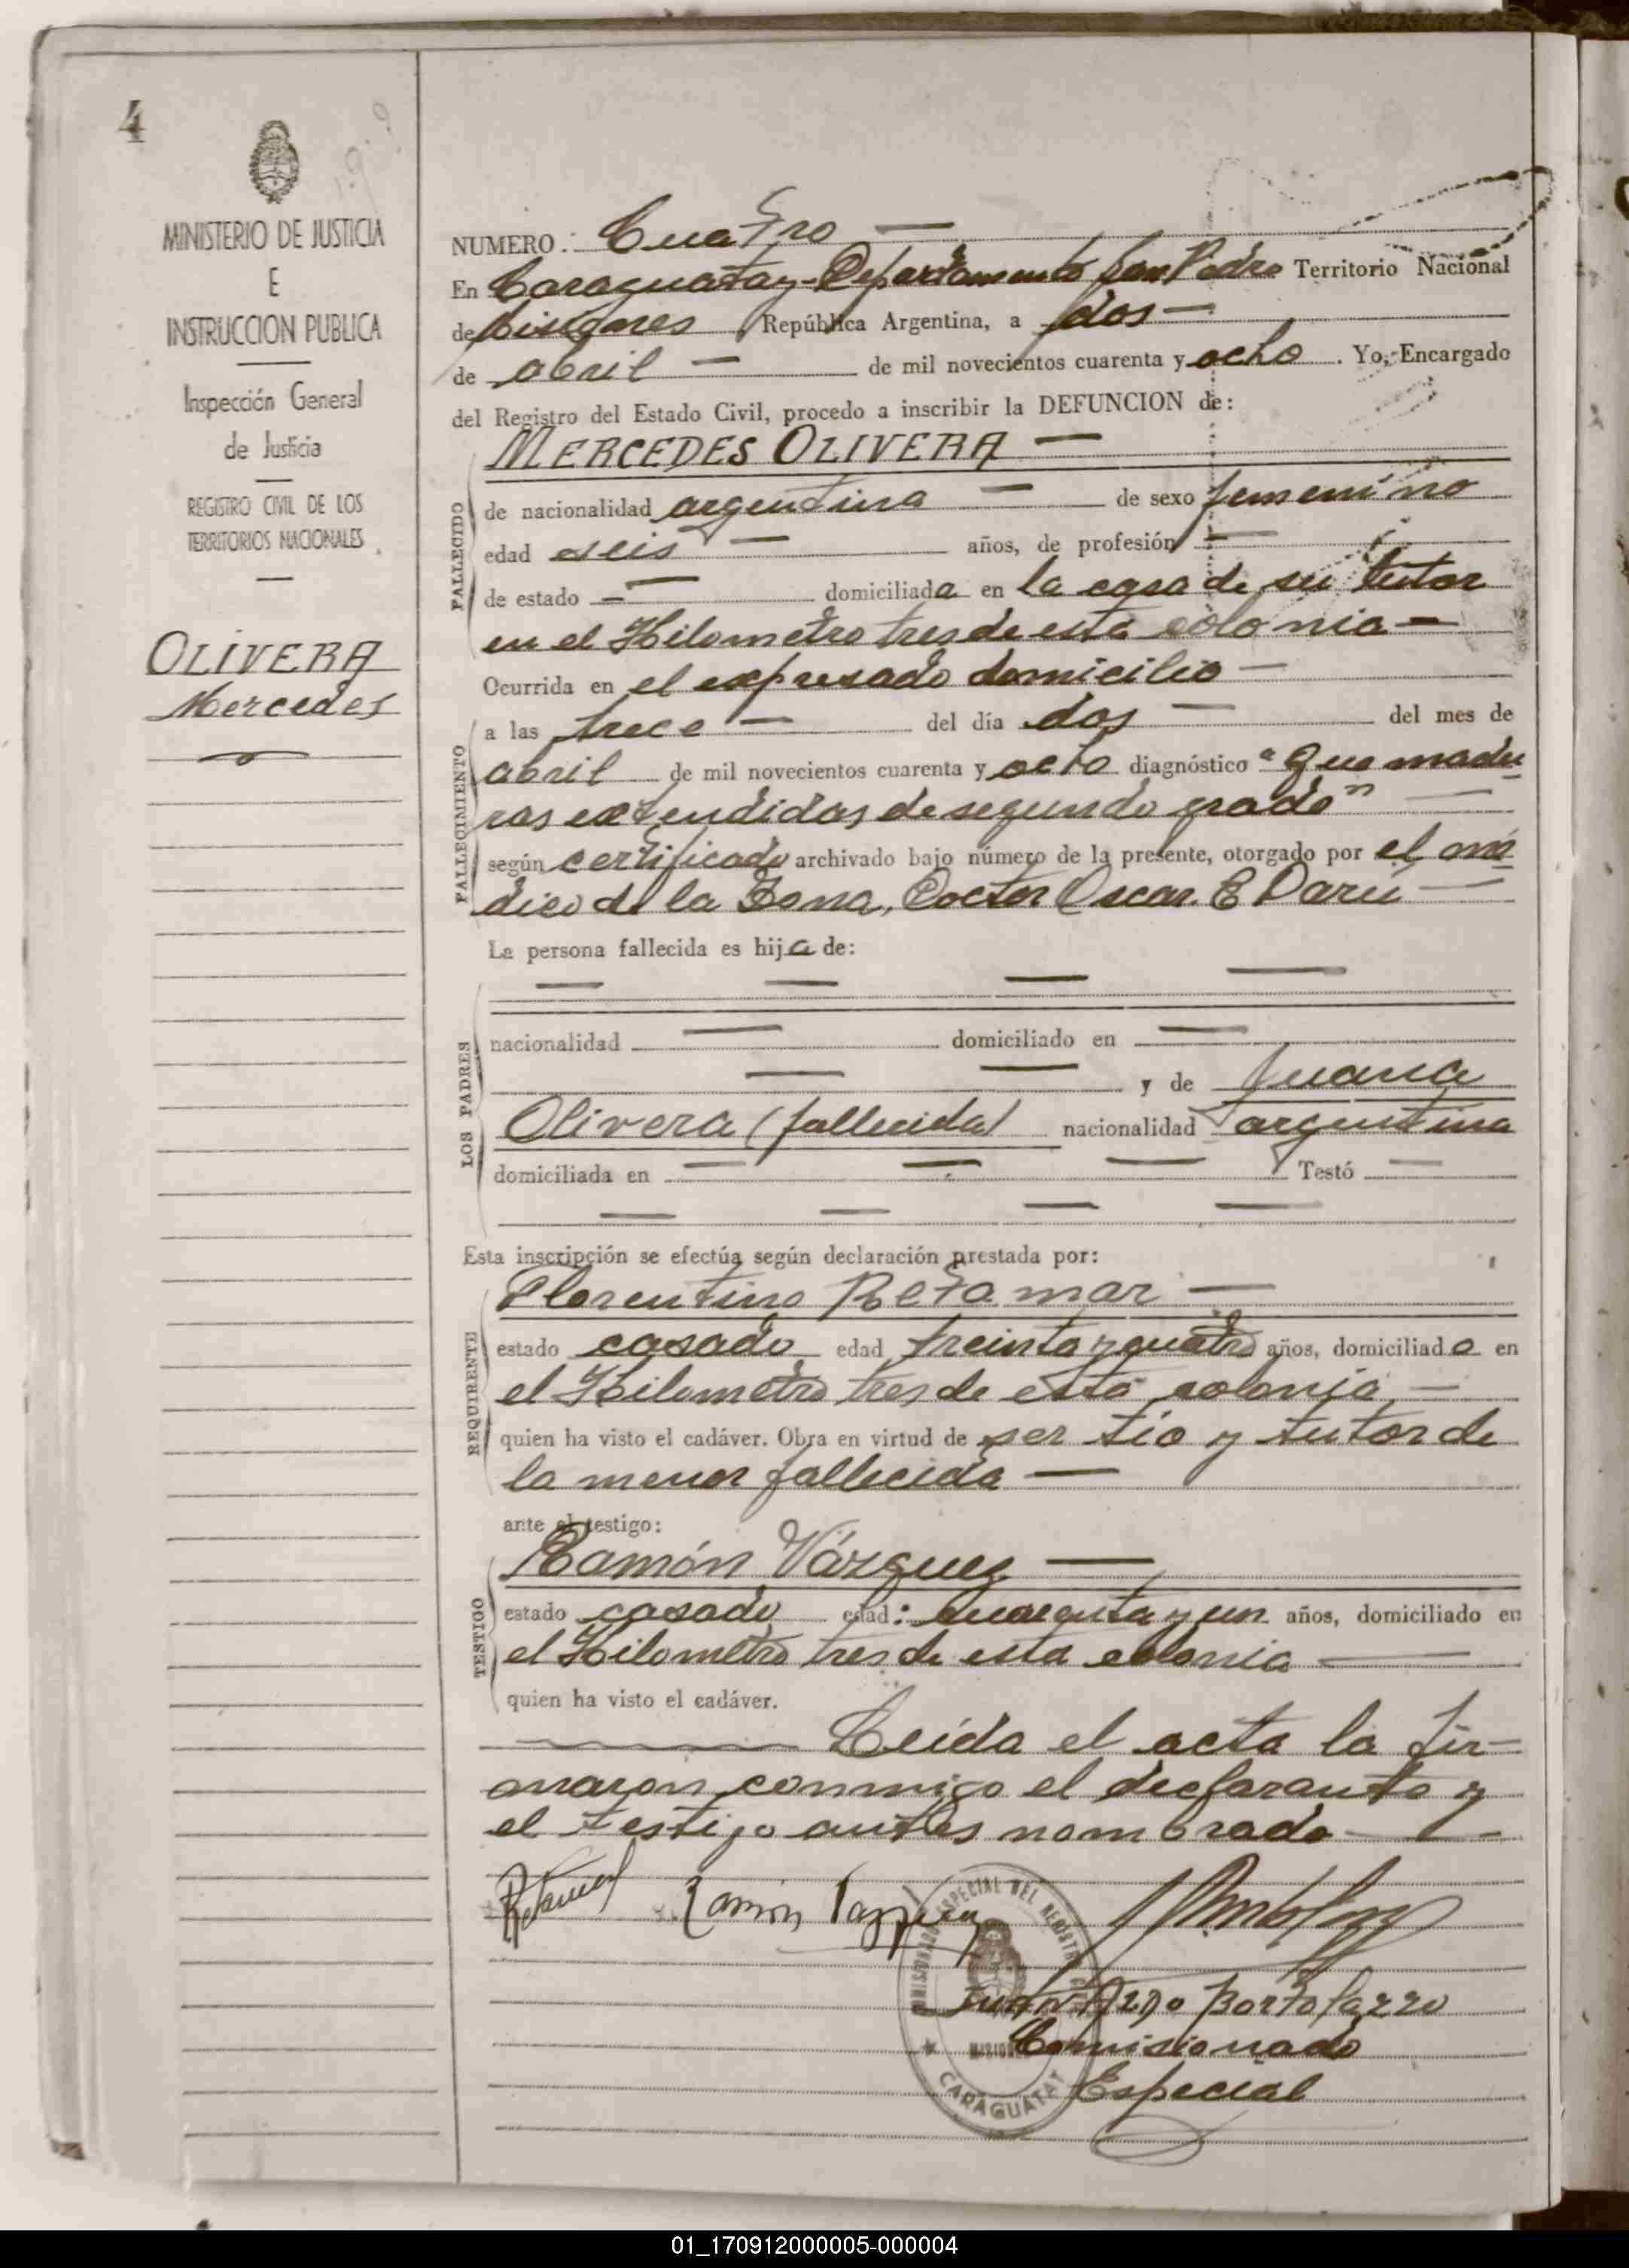 4
MINISTERIO DE JUSTICIA
E
INSTRUCCION PUBLICA
Inspección General
de Justicia
REGISTRO CIVIL DE LOS
TERRITORIOS NACIONALES
OLIVERA
Mercedes
NUMERO: Cuatro
En Caraguatay-Departamento San Pedro Territorio Nacional
de Misiones República Argentina, a dos
de abril de mil novecientos cuarenta y ocho. Yo, Encargado
del Registro del Estado Civil, procedo a inscribir la DEFUNCION de:
MERCEDES OLIVERA
FALLECIDO
de nacionalidad argentina de sexo femenino
edad seis años, de profesión
de estado domiciliada en la casa de su tutor
en el Kilometro tres de esta colonia
Ocurrida en el expresado domicilio
FALLECIMIENTO
a las trece del día dos del mes de
abril de mil novecientos cuarenta y ocho diagnóstico "Quemadu
ras extendidas de segundo grado"
según certificado archivado bajo número de la presente, otorgado por el mé
dico de la Zona, Doctor Oscar E Darú
La persona fallecida es hija de:
LOS PADRES
nacionalidad domiciliado en
y de Juana
Olivera (fallecida) nacionalidad argentina
domiciliada en Testó
Esta inscripción se efectúa según declaración prestada por:
Florentino Retamar
REQUIRENTE
estado casado edad treinta y cuatro años, domiciliado en
el Kilometro tres de esta colonia
quien ha visto el cadáver. Obra en virtud de ser tío y tutor de
la menor fallecida
ante el testigo:
Ramón Vázquez
TESTIGO
estado casado edad: cuarenta y un años, domiciliado en
el Kilometro tres de esta colonia
quien ha visto el cadáver.
Leída el acta la fir-
maron conmigo el declarante y
el testigo antes nombrado
Retamar Ramón Vazquez
COMISIONADO ESPECIAL DEL REGISTRO
MISIONES
CARAGUATAY
Bortolazzo
Comisionado
Especial
01_170912000005-000004